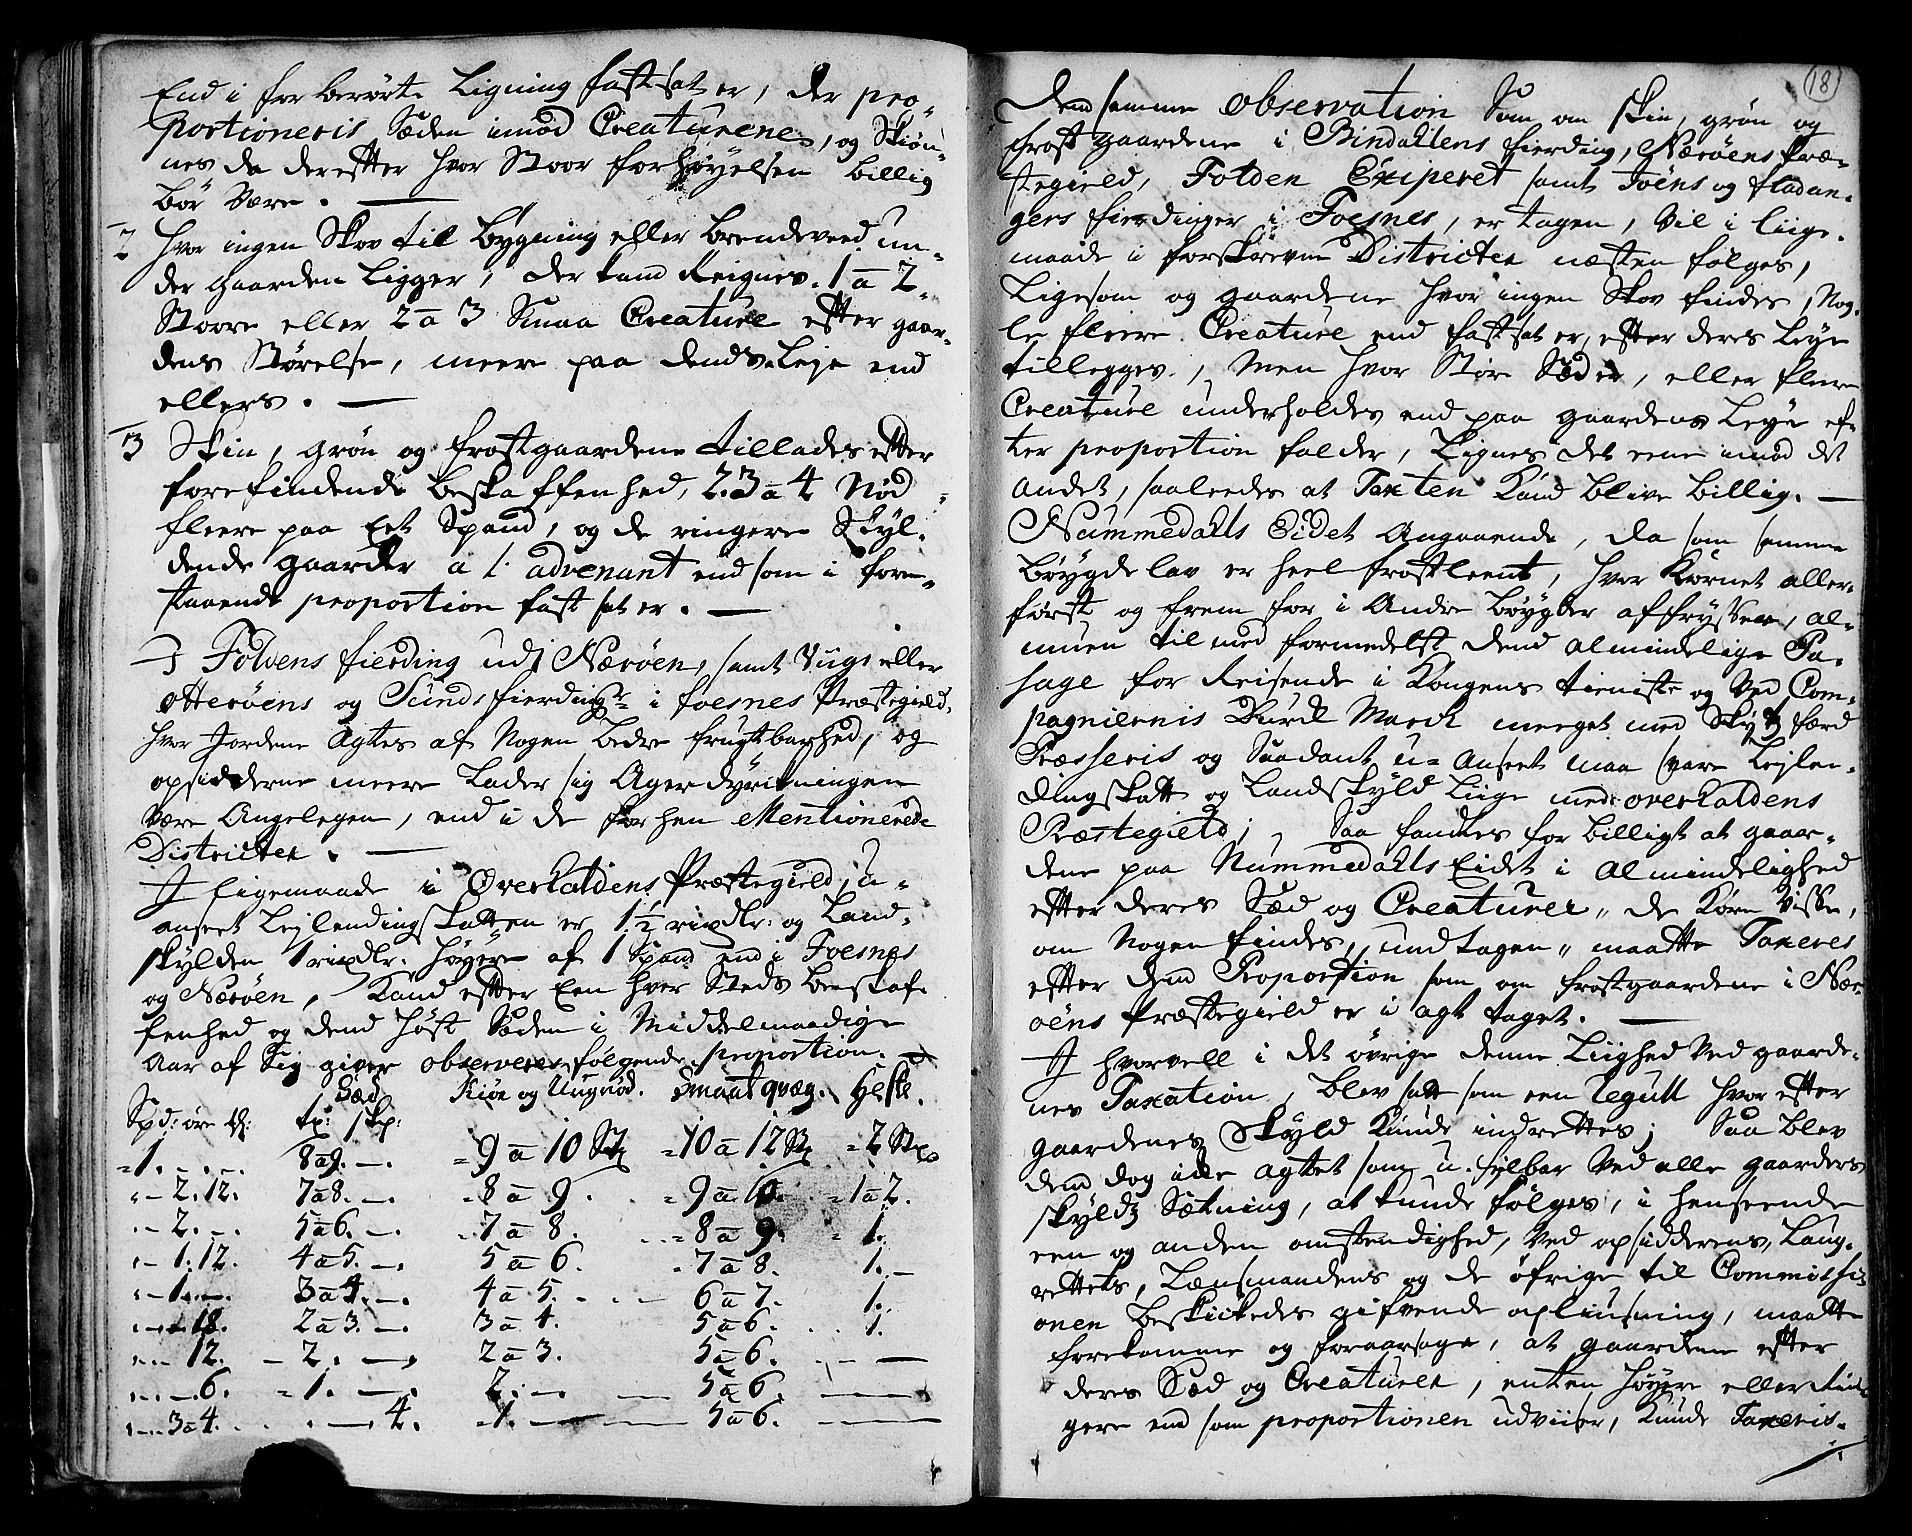 End i forberörte Ligning fastsat er, der pro-
portioneris Sæden imod Creaturene, og Skiön-
nes da derefter hvor Stoor forhöyelsen billig
bör Være.
2 Hvor ingen Skov til bygning eller brendeveed un-
der gaarden Ligger, der kand Reignes 1 a 2
Stoore eller 2 a 3 Smaa Creature efter gaar-
dens Störelse, meere paa dends Leje end
ellers.
3 Skin, grön og frostgaardene tillades efter
forefindende beskaffenhed, 2. 3 a 4 Nöd
fleere paa Eet Spand, og de ringere Skyl-
dende gaarder a l'advenant end som i fore-
staaende proportion fastsat er.
I Foldens fierding udi Næröen, samt Viigs eller
Otteröens og Sunds fierdinger i foesnes Præstegield,
hvor Jordene Agtes af Nogen bedre frugtbarhed, og
opsidderne meere Lader sig Agerdyrkningen
være Angelegen, end i de forhen Mentionerede
Districter.
I Ligemaade i Overhaldens Præstegield, u-
anseet Lejlendingskatten er 1½ rixdlr: og Land-
skylden 1 rixdlr. höyere af 1 Spand end i Foesnes
og Næröen, Kand efter Een hver Steds beskaf-
fenhed og dend höst Sæden i Middelmaadige
Aar af Sig giver observeres fölgende proportion.
Sæd Kiör og Ungnöd. Smaat qvæg. Heste.
Spd: öre ℔: tr: skp:
" 1. _ . _ . 8 a 9. _. " 9 a 10 St " 10 a 12 St " 2 St
" _ 2. 12. 7 a 8. _. " 8 a 9. " 9 a 10. " 1 a 2.
" _ 2. _. 5 a 6. _. " 7 a 8. " 8 a 9. " 1.
" _ 1. 12. 4 a 5. _. 5 a 6. " 7 a 8. 1. _
" _ 1. _. 3 a 4. _. 4 a 5. 6 a 7. 1.
" _ " 18. 2 a 3. _. 3 a 4. 5 a 6. 1.
" _ 12. _ 2. _. 2 a 3. 5 a 6. _
" _ 6. " 1. _. 2. _ 5 a 6. _
" _ 3 a 4. . _ 4. " 1. _ 5 a 6. _
18
Dend samme observation Som om skin, grön og
frost gaardene i Bindallens fierding, Næröens Præ-
stegield, Folden Exiperet samt Foëns og fladan-
gers fierdinger i Foesnes, er tagen, Vil i liige-
maade i forskrevne Districter næsten fölges,
Ligesom og gaardene hvor ingen Skov findes, Nog-
le fleere Creature end fastsat er, efter deres Leye
tillegges, Men hvor Stör Sæd er, eller fleere
Creature underholdes end paa gaardens Leye ef-
ter proportion falder, Lignes det eene imod det
andet, saaleedes at Taxten Kand blive billig.
Nummedalls Eidet Angaaende, da som samme
böygdelav er heel frostleent, hvor Kornet aller-
först og frem for i Andre böygder affrÿsser, al-
muen til med formedelst dend almindelige Pa-
sage for Reisende i Kongens tieniste og Ved Com-
pagniernis Durch March meeget med Skydtzfærd
Præsseris og Saadant u-anseet maa svare Lejlen-
dingskatt og Landskyld Liige med overhaldens
Præstegield; Saa fandtes for billigt at gaar-
dene paa Nummedalls Eidet i Almindelighed
efter deres Sæd og Creaturer, de Korn Visse,
om Nogen findes, undtagen, maatte Taxeres
efter dend Proportion som om frostgaardene i Nær-
öens Præstegield er i agt taget.
I hvorvell i det övrige denne Liighed Ved gaarde-
nes Taxation, blev satt som een Regull hvor efter
gaardenes Skyld Kunde indrettes; Saa blev
dend dog icke agtet som u-feilbar Ved alle gaarders
skyldz Sætning, at kunde fölges, i henseende
een og anden omstendighed, Ved opsidderens, Laug-
rettets, Lænsmandens og de öfrige til Commissi-
onen beskickedes gifvende opliusning, maatte
forekomme og foraarsage, at gaardene efter
deres Sæd og Creaturer, enten höyere eller Rin-
gere end som proportionen udviiser, Kunde Taxeris.